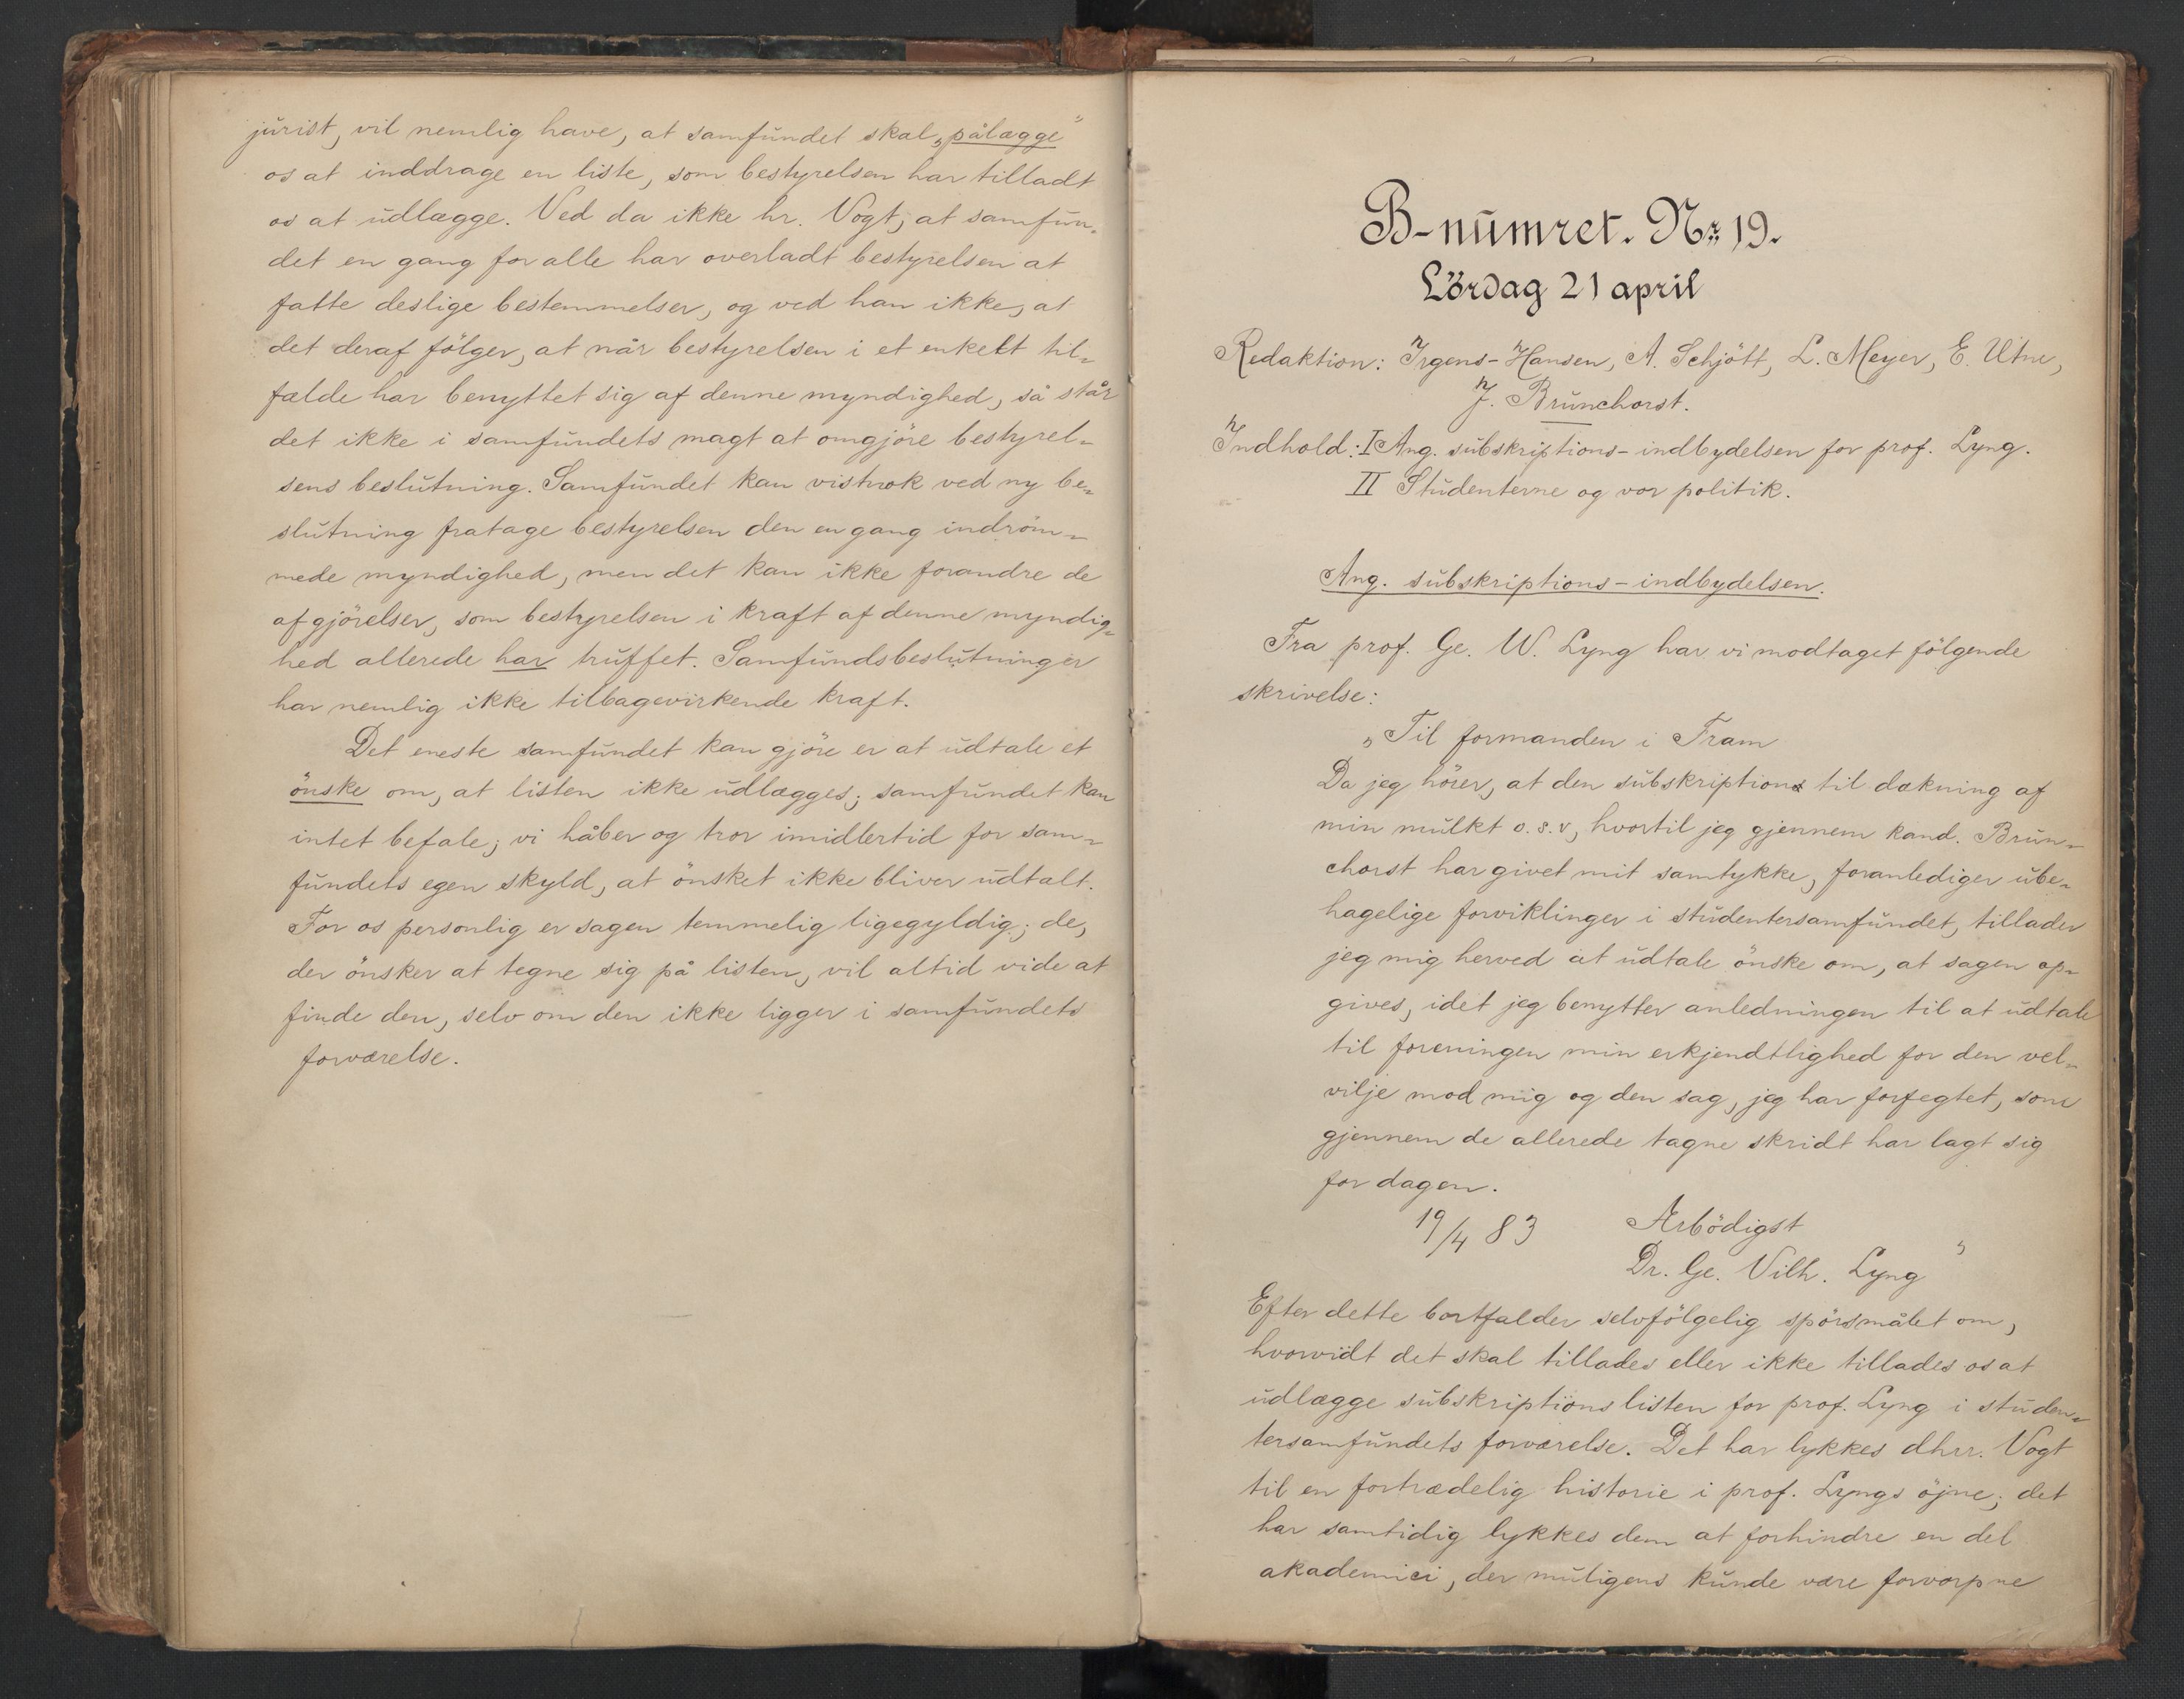 jurist, vil nemlig have, at samfundet skal „pålægge"
os at inddrage en liste, som bestyrelsen har tilladt
os at udlægge. Ved da ikke hr. Vogt, at samfun-
det en gang for alle har overladt bestyrelsen at
fatte deslige bestemmelser, og ved han ikke, at
det deraf fölger, at når bestyrelsen i et enkelt til-
fælde har benyttet sig af denne myndighed, så står
det ikke i samfundets magt at omgjöre bestyrel-
sens beslutning. Samfundet kan vistnok ved ny be-
slutning fratage bestyrelsen den en gang indröm-
mede myndighed, men det kan ikke forandre de
afgjörelser, som bestyrelsen i kraft af denne myndig-
hed allerede har truffet. Samfundsbeslutninger
har nemlig ikke tilbagevirkende kraft.
Det eneste samfundet kan gjöre er at udtale et
önske om, at listen ikke udlægges; samfundet kan
intet befale; vi håber og tror imidlertid for sam-
fundets egen skyld, at önsket ikke bliver udtalt.
For os personlig er sagen temmelig ligegyldig; de,
der önsker at tegne sig på listen, vil altid vide at
finde den, selv om den ikke ligger i samfundets
forværelse.
B-numret. Nr 19.
Lördag 21 april
Redaktion: Irgens-Hansen, A. Schjött, L. Meyer, E. Utne,
J. Brunchorst.
Indhold: I Ang. subskriptions-indbydelsen for prof. Lyng.
II Studenterne og vor politik.
Ang. subskriptions-indbydelsen.
Fra prof. Ge. W. Lyng har vi modtaget fölgende
skrivelse:
„Til formanden i Fram
Da jeg hörer, at den subskription til dækning af
min mulkt o.s.v, hvortil jeg gjennem kand. Brun-
chorst har givet mit samtykke, foranlediger ube-
hagelige forviklinger i studentersamfundet, tillader
jeg mig herved at udtale önske om, at sagen op-
gives, idet jeg benytter anledningen til at udtale
til foreningen min erkjendtlighed for den vel-
vilje mod mig og den sag, jeg har forfegtet, som
gjennem de allerede tagne skridt har lagt sig
for dagen.
19/4 83 Ærbödigst
Dr. Ge. Vilh. Lyng"
Efter dette bortfalder selvfölgelig spörsmålet om,
hvorvidt det skal tillades eller ikke tillades os at
udlægge subskriptionslisten for prof. Lyng i studen-
tersamfundets forværelse. Det har lykkes dhrr. Vogt
til en fortrædelig historie i prof. Lyngs öjne; det
har samtidig lykkes dem at forhindre en del
akademici, der muligens kunde være forvorpne